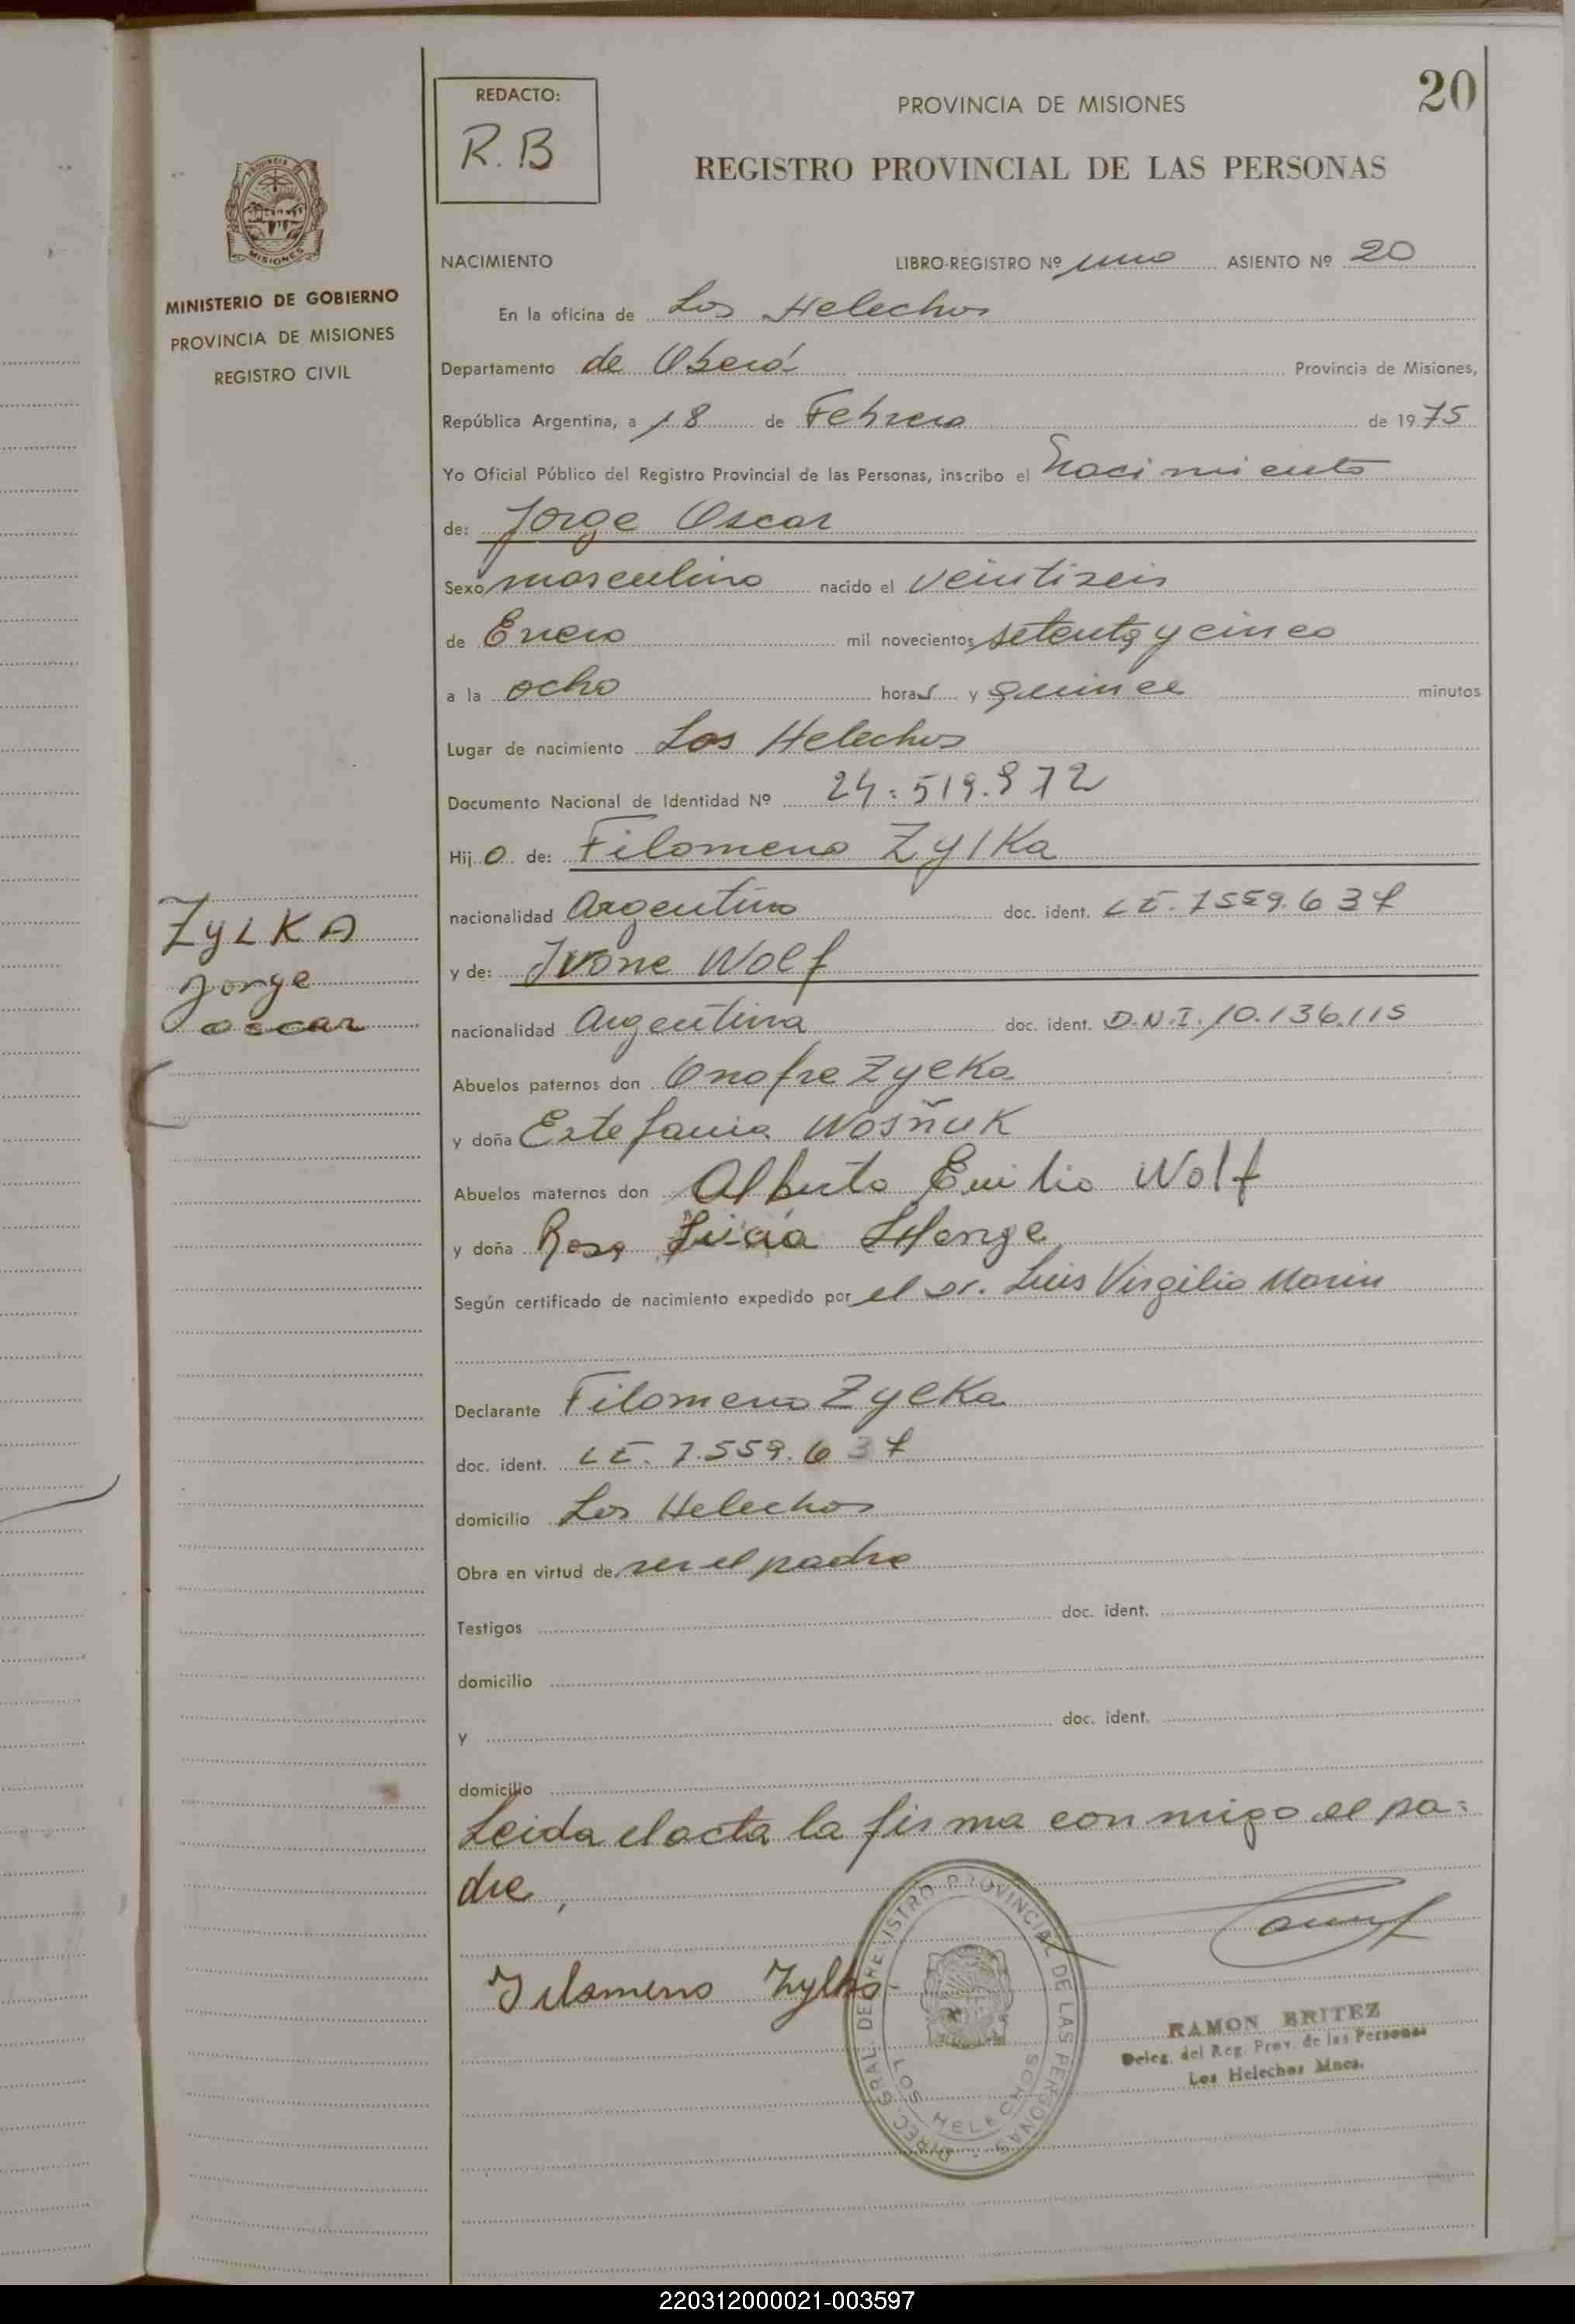 20
REDACTO:
R. B
PROVINCIA DE MISIONES
REGISTRO PROVINCIAL DE LAS PERSONAS
PROVINCIA
MISIONES
MINISTERIO DE GOBIERNO
PROVINCIA DE MISIONES
REGISTRO CIVIL
NACIMIENTO LIBRO-REGISTRO Nº uno ASIENTO Nº 20
En la oficina de Los Helechos
Departamento de Oberá Provincia de Misiones,
República Argentina, a 18 de Febrero de 1975
Yo Oficial Público del Registro Provincial de las Personas, inscribo el Nacimiento
de: Jorge Oscar
Sexo masculino nacido el veintiseis
de Enero mil novecientos setenta y cinco
a la ocho horas y quince minutos
Lugar de nacimiento Los Helechos
Documento Nacional de Identidad Nº 24.519.972
Hijo de: Filomeno Zylka
nacionalidad Argentino doc. ident. LE. 7559.637
y de: Ivone Wolf
nacionalidad Argentina doc. ident. D.N.I. 10.136.115
Abuelos paternos don Onofre Zylka
y doña Estefania Wosñuk
Abuelos maternos don Alberto Emilio Wolf
y doña Rosa Lucia
Según certificado de nacimiento expedido por el Dr. Luis Virgilio Marin
Declarante Filomeno Zylka
doc. ident. LE. 7.559.637
domicilio Los Helechos
Obra en virtud de ser el padre
Testigos doc. ident.
domicilio
y doc. ident.
domicilio
Leida el acta la firma conmigo el pa-
dre,
Filomeno Zylka
ZYLKA
Jorge
Oscar
DIREC. GRAL. DEL REGISTRO PROVINCIAL DE LAS PERSONAS
LOS HELECHOS
RAMON BRITEZ
Deleg. del Reg. Prov. de las Personas
Los Helechos Mnes.
220312000021-003597